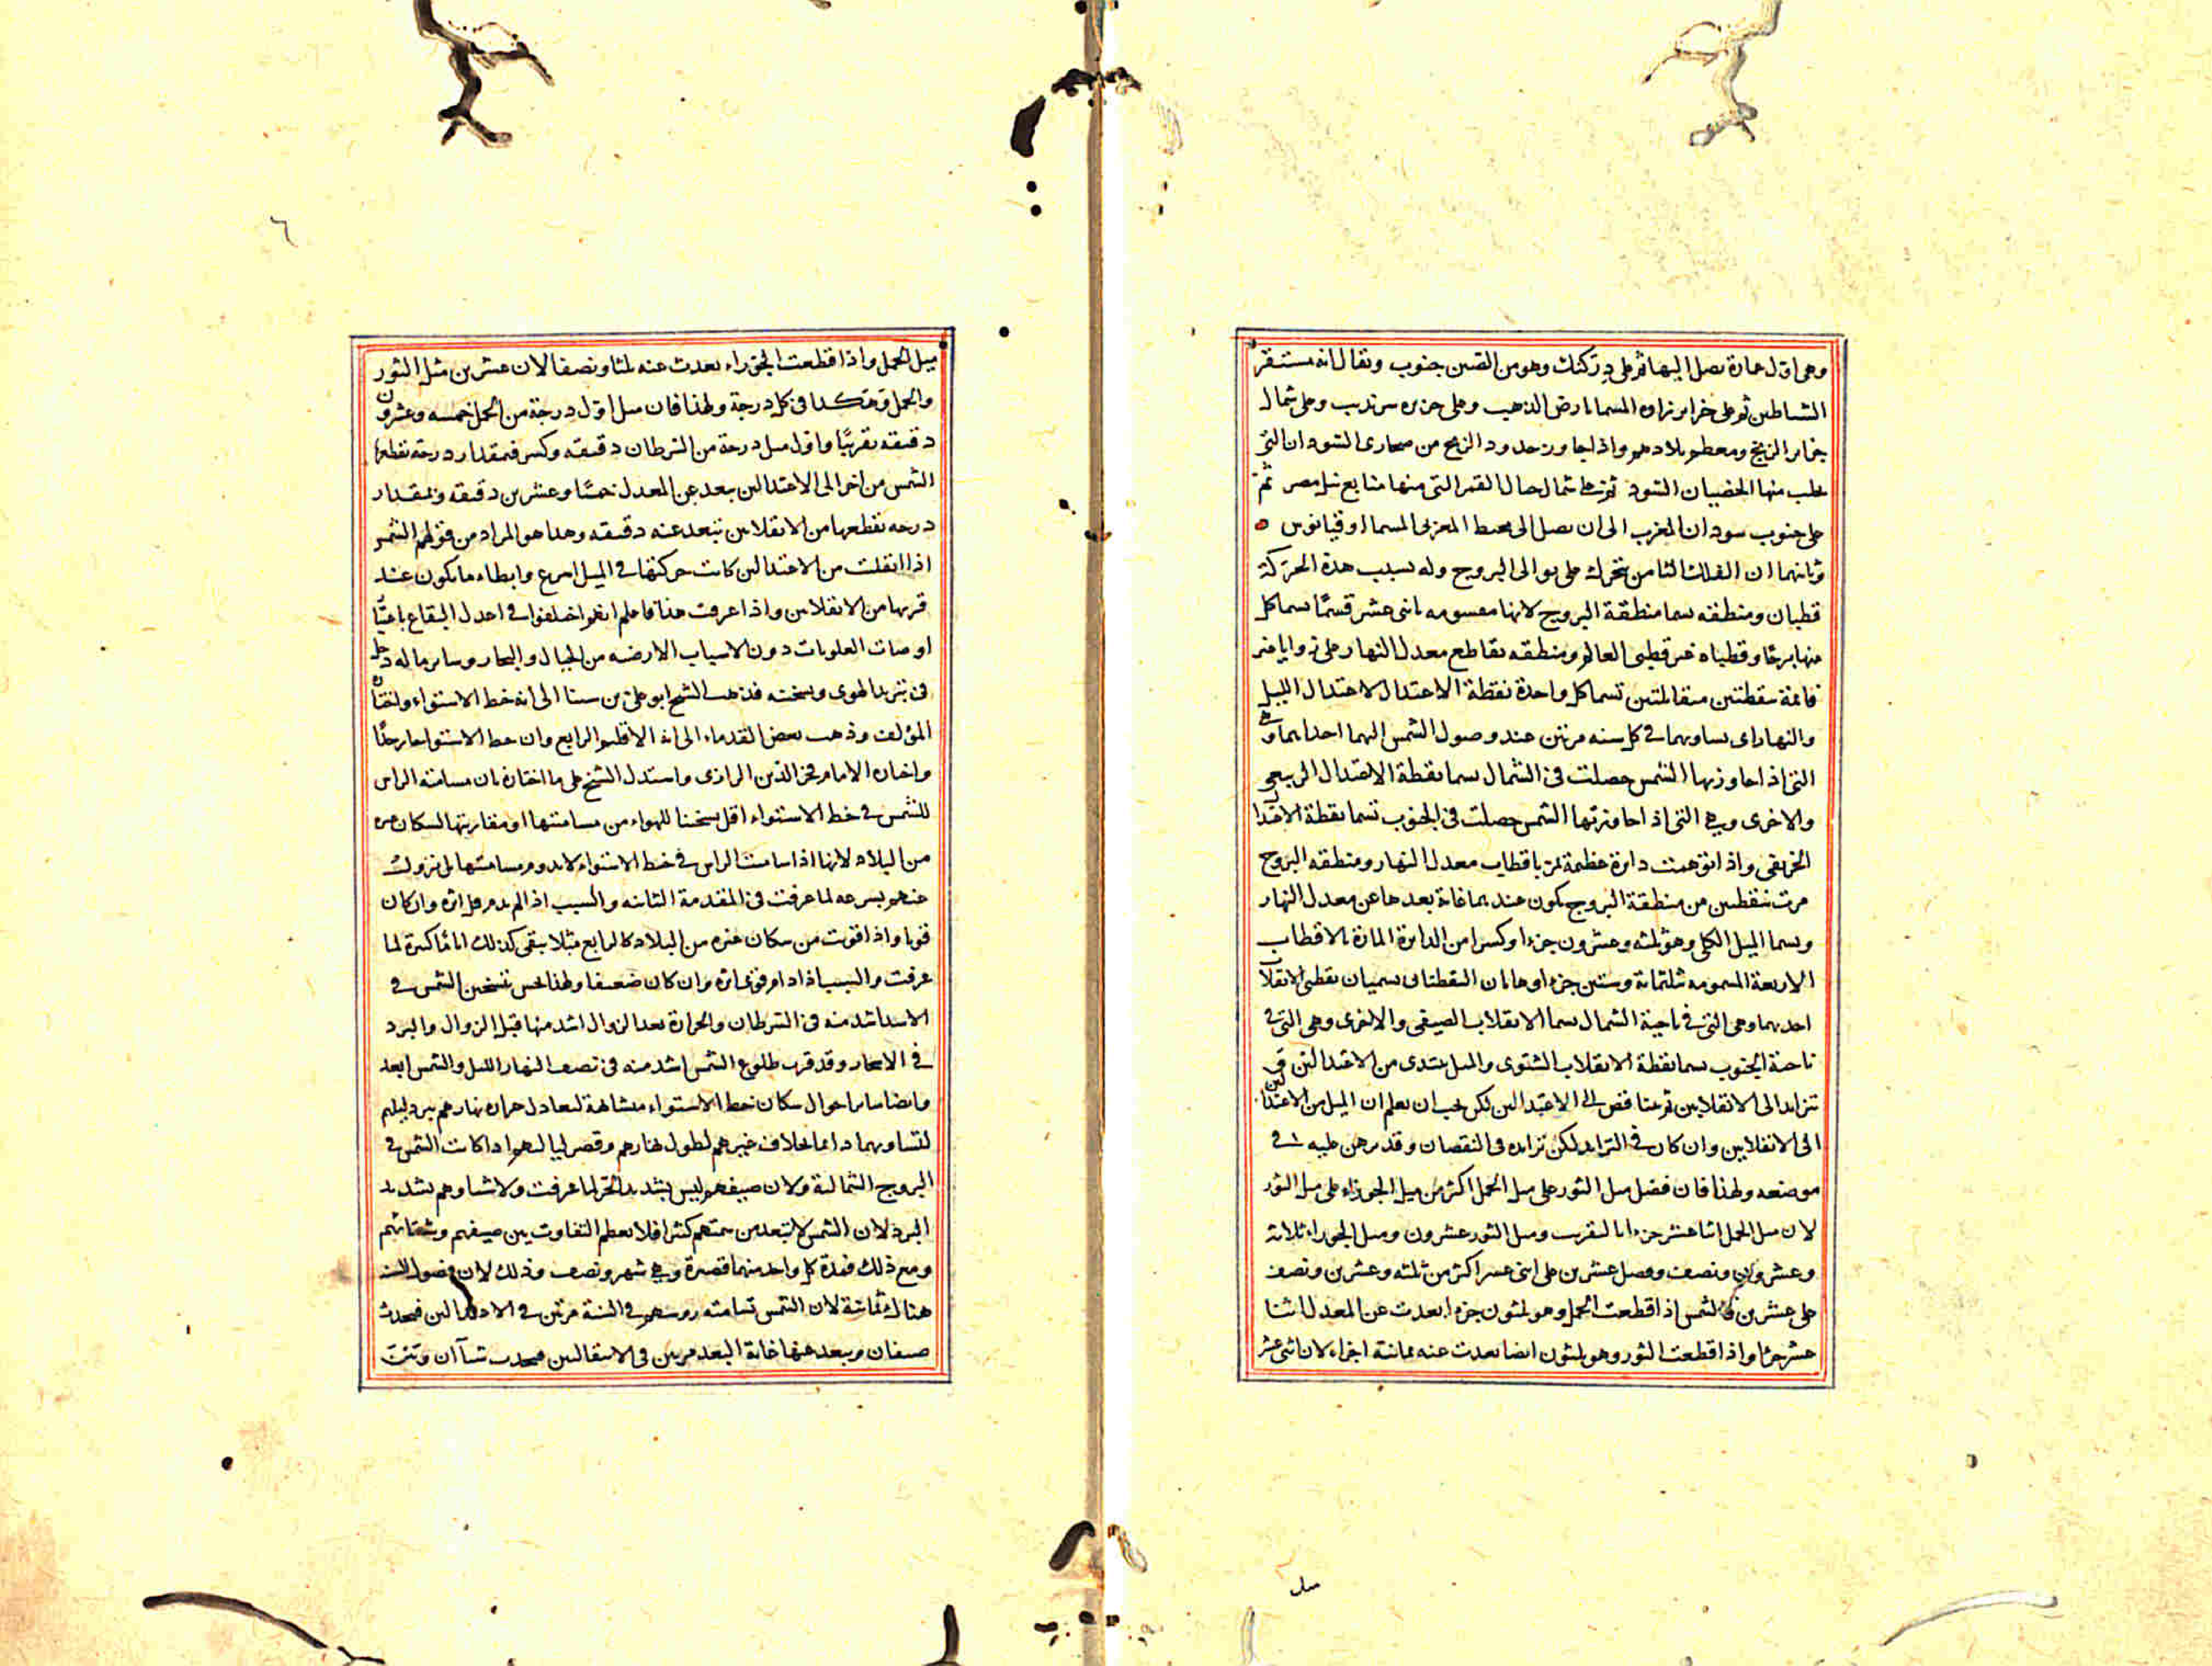 وهي اول عمارة تصل اليها ثم على دزكنك وهو من الصين جنوب ويقال انه مستقر
الشياطين ثم على جزاير زاوه المسما بارض الذهب وعلى جزيره سرنديب وعلى شمال
جزاير الزنج ومعظم بلادهم واذا جاوز حدود الزنج من صحارى السودان التى
يجلب منها الخصيان السود ثم على شمال جبال القمر التى منها منابع نيل مصر ثم
على جنوب سودان المغرب الى ان يصل الى محيط المغربى المسما اوقيانوس
وثانيهما ان الفلك الثامن يتحرك على توالى البروج وله بسبب هذه الحركة
قطبان ومنطقه يسما منطقة البروج لانها مقسومه باثنى عشر قسمًا يسما كل
منها برجًا وقطباه غير قطبى العالم ومنطقه تقاطع معدل النهار على زوايا غير
قائمة بنقطتين متقابلتين تسما كل واحدة نقطة الاعتدال لاعتدال الليل
والنهار اى تساويهما فى كل سنه مرتين عند وصول الشمس اليهما احدايهما وهى
التى اذا جاوزتها الشمس حصلت فى الشمال يسما نقطة الاعتدال الربيعى
والاخرى وهى التى اذا جاوزتها الشمس حصلت فى الجنوب تسما نقطة الاعتدال
الخريفى واذا توهمت دائرة عظيمة تمر باقطاب معدل النهار ومنطقه البروج
مرت بنقطتين من منطقة البروج يكون عندهما غاية بعدها عن معدل النهار
ويسما الميل الكلى وهو ثلثه وعشرون جزءا وكسر من الدائرة المارة بالاقطاب
الاربعة المقسومه ثلثمائة وستين جزءا وهاتان النقطتان يسميان نقطتى الانقلاب
احديهما وهى التى فى ناحية الشمال يسما الانقلاب الصيفى والاخرى وهى التى فى
ناحية الجنوب يسما نقطة الانقلاب الشتوى والميل يبتدى من الاعتدالين فى
تزايد الى الانقلابين ثم يتناقص الى الاعتدالين لكن يجب ان يعلم ان الميل من الاعتدالين
الى الانقلابين وان كان فى التزايد لكن تزايده فى النقصان وقد برهن عليه فى
موضعه ولهذا فان فضل ميل الثور على ميل الحمل اكثر من ميل الجوزاء على ميل الثور
لان ميل الحمل اثنا عشر جزءا بالتقريب وميل الثور عشرون وميل الجوزاء ثلاثة
وعشرون ونصف وفضل عشرين على اثنى عشر اكثر من ثلثه وعشرين ونصف
على عشرين فالشمس اذا قطعت الحمل وهو ثلثون جزءا بعدت عن المعدل اثنا
عشر جزءا واذا قطعت الثور وهو ثلثون ايضا بعدت عنه ثمانية اجزاء لان اثنى عشر
ميل
٦
ميل الحمل واذا قطعت الجوزاء بعدت عنه ثلثا ونصفا لان عشرين مثل الثور
والحمل وهكذا فى كل درجة ولهذا فان ميل اول درجة من الحمل خمسه وعشرون
دقيقه تقريبًا واول ميل درجة من السرطان دقيقه وكسر فمقدار درجة تقطعها
الشمس من اخر الى الاعتدالين يبعد عن المعدل خمسًا وعشرين دقيقه وبمقدار
درجه تقطعها من الانقلابين تبعد عنه دقيقه وهذا هو المراد من قولهم الشمس
اذا انقلت من الاعتدالين كانت حركتها فى الميل اسرع وابطاء ما يكون عند
قربها من الانقلابين واذا عرفت هذا فاعلم انهم اختلفوا فى اعدل البقاع باعتبار
اوضاع العلويات دون الاسباب الارضيه من الجبال والبحار وساير ماله دخل
فى تبريد الهوى وسخنته فذهب الشيخ ابو على بن سينا الى انه خط الاستواء واختاره
المؤلف وذهب بعض القدماء الى انه الاقليم الرابع وان خط الاستواء حار جدًا
واختاره الامام فخر الدين الرازى واستدل الشيخ على ما اختاره بان مسامتة الراس
للشمس فى خط الاستواء اقل تسخينا للهواء من مسامتتها او مقاربتها لسكان غيره
من البلاد لانها اذا سامت الراس فى خط الاستواء لا يدوم مسامتتها بل يزول
عنهم بسرعه لما عرفت فى المقدمة الثانيه والسبب اذا لم يدم قل اثره وان كان
قويا واذا قربت من سكان غيره من البلاد كالرابع مثلا يبقى كذلك ايامًا كثيرة لما
عرفت والسبب اذا دام قوى اثره وان كان ضعيفا ولهذا يحس تسخين الشمس فى
الاسد اشد منه فى السرطان والحرارة بعد الزوال اشد منها قبل الزوال والبرد
فى الاسحار وقد قرب طلوع الشمس اشد منه فى نصف النهار الليل والشمس ابعد
وايضا ساير احوال سكان خط الاستواء متشابهة لتعادل حرارة نهارهم ببرد ليلهم
لتساويهما دائما بخلاف غيرهم لطول نهارهم وقصر لياليهم اذا كانت الشمس فى
البروج الشمالية ولان صيفهم ليس بشديد الحر لما عرفت ولا شتاوهم بشديد
البرد لان الشمس لا تبعد من سمتهم كثيرا فلا يعظم التفاوت بين صيفهم وشتائهم
ومع ذلك فمدة كل واحد منهما قصيرة وهى شهر ونصف وذلك لان فصول السنة
هناك ثمانية لان الشمس تسامته روسهم فى السنة مرتين فى الاعتدالين فيحدث
صيفان ويبعد عنها غاية البعد مرتين فى الانقلابين فيحدث شتاآن وتثبت